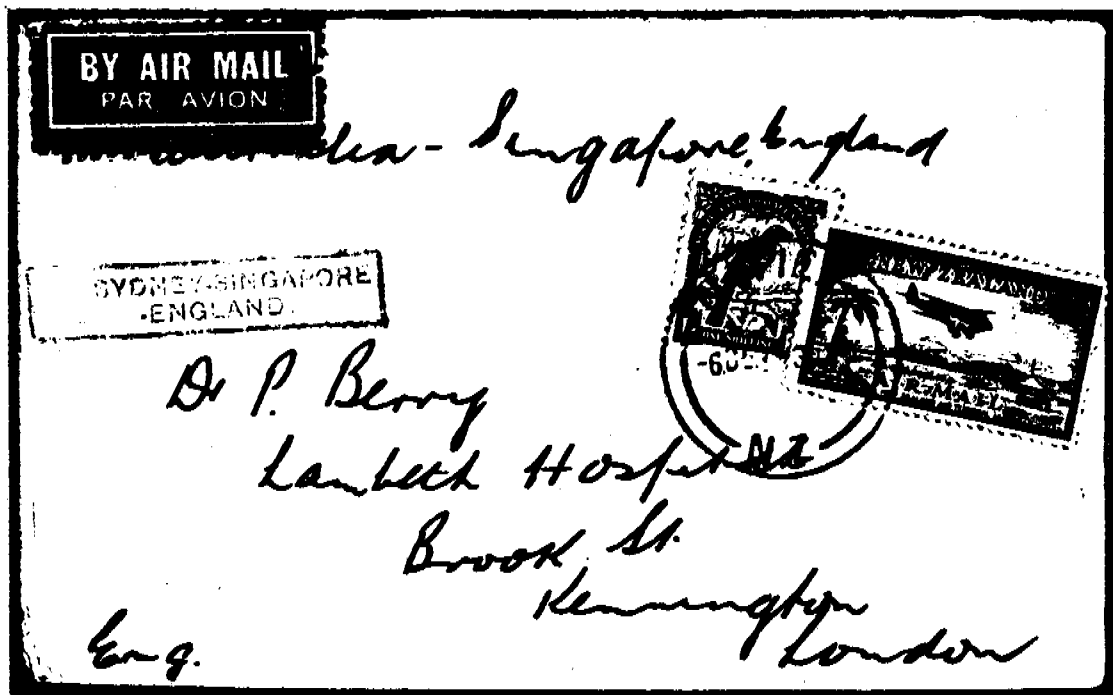 BY AIR MAIL
PAR AVION
- Singapore, England
SYDNEY-SINGAPORE
-ENGLAND.
NEW ZEALAND
AIR MAIL
-6 DE
N.Z
Dr P. Berry
Lambeth Hospit
Brook St.
Kennington
London
Eng.